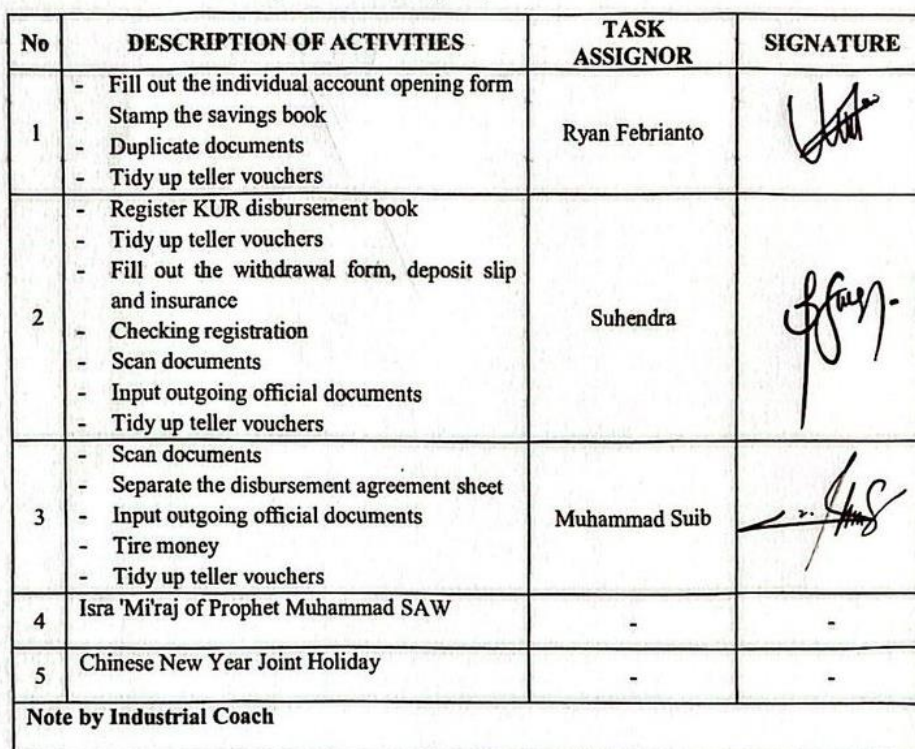 No DESCRIPTION OF ACTIVITIES TASK ASSIGNOR SIGNATURE
1
- Fill out the individual account opening form
- Stamp the savings book
- Duplicate documents
- Tidy up teller vouchers
Ryan Febrianto
2
- Register KUR disbursement book
- Tidy up teller vouchers
- Fill out the withdrawal form, deposit slip
and insurance
- Checking registration
- Scan documents
- Input outgoing official documents
- Tidy up teller vouchers
Suhendra
3
- Scan documents
- Separate the disbursement agreement sheet
- Input outgoing official documents
- Tire money
- Tidy up teller vouchers
Muhammad Suib
4 Isra 'Mi'raj of Prophet Muhammad SAW - -
5 Chinese New Year Joint Holiday - -
Note by Industrial Coach